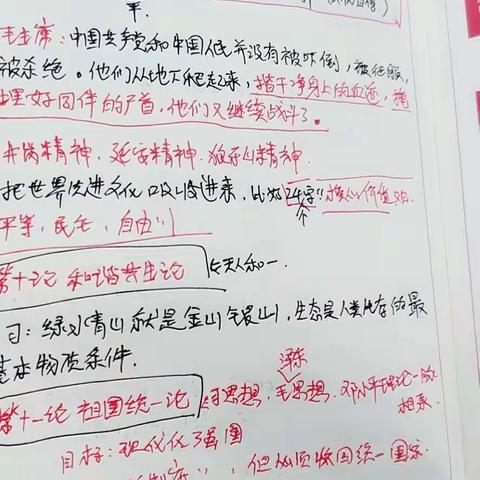 毛主席：中国共产党和中国人民并没有被吓倒，被征服，
被杀绝。他们从地下爬起来，揩干净身上的血迹，掩
埋好同伴的尸首，他们又继续战斗了。
井岗精神．延安精神．狼牙山精神．
把世界先进文化吸收进来，比如"24字"核心价值观．
个
平等，民主，自由
第十论 和谐共生论 天人和一．
习：绿水青山就是金山银山，生态是人类生存的最
基本物质条件．
泽东
第十一论 祖国统一论 习思想，毛思想．邓小平理论一脉
相承．
目标：现代化强国
但必须收回统一国家．